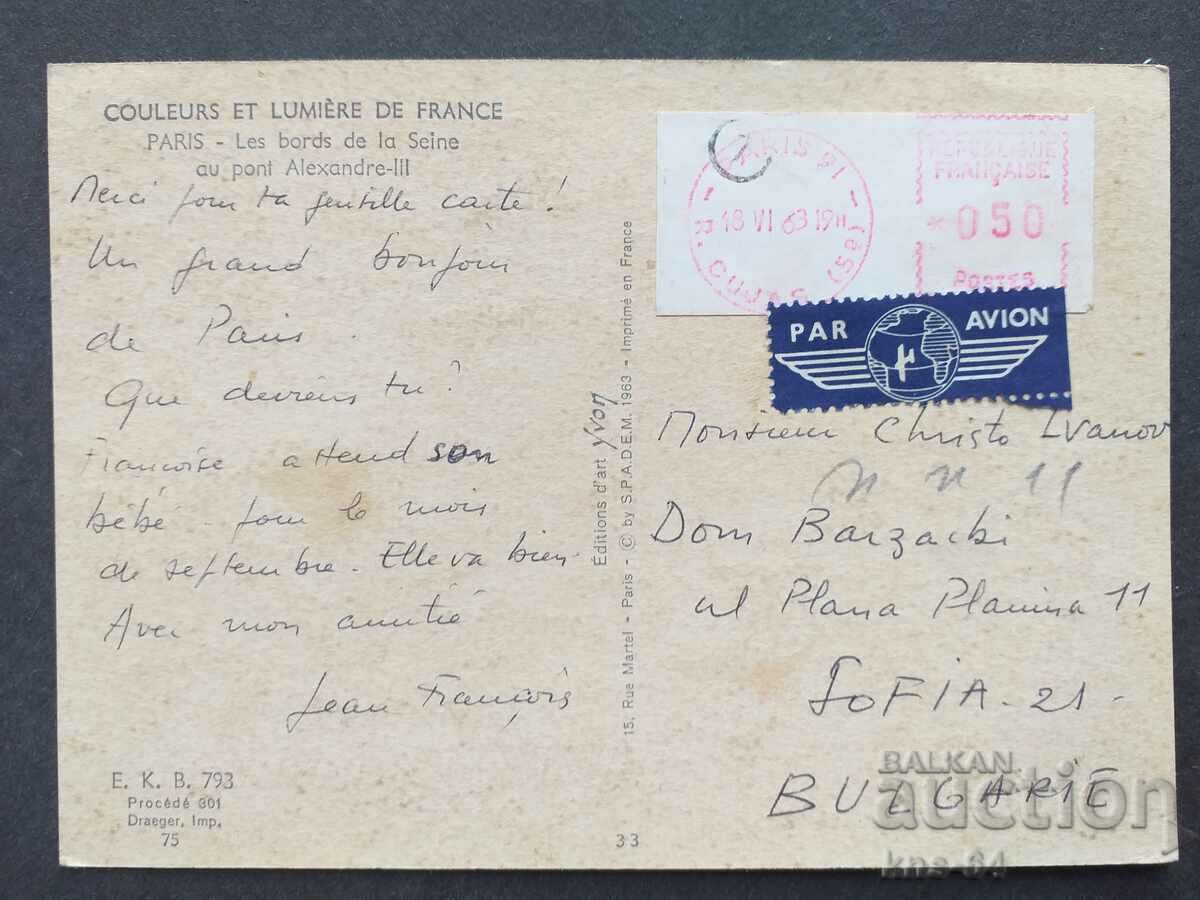 COULEURS ET LUMIÈRE DE FRANCE
PARIS - Les bords de la Seine
au pont Alexandre-III
Merci pour ta gentille carte !
Un grand bonjour
de Paris.
Que deviens tu ?
Françoise attend son
bébé pour le mois
de septembre. Elle va bien.
Avec mon amitié
Jean François
E. K. B. 793
Procédé 301
Draeger, Imp.
75
33
Éditions d'art Yvon
15, Rue Martel - Paris - © by S.P.A.D.E.M. 1963 - Imprimé en France
PARIS VI
18 VI 63 19H
R. CUJAS (5e)
RÉPUBLIQUE
FRANÇAISE
*050
POSTES
PAR AVION
Monsieur Christo Ivanov
Dom Barzacki
ul Plana Planina 11
SOFIA. 21.
BULGARIE
BALKAN
auction
kns-64